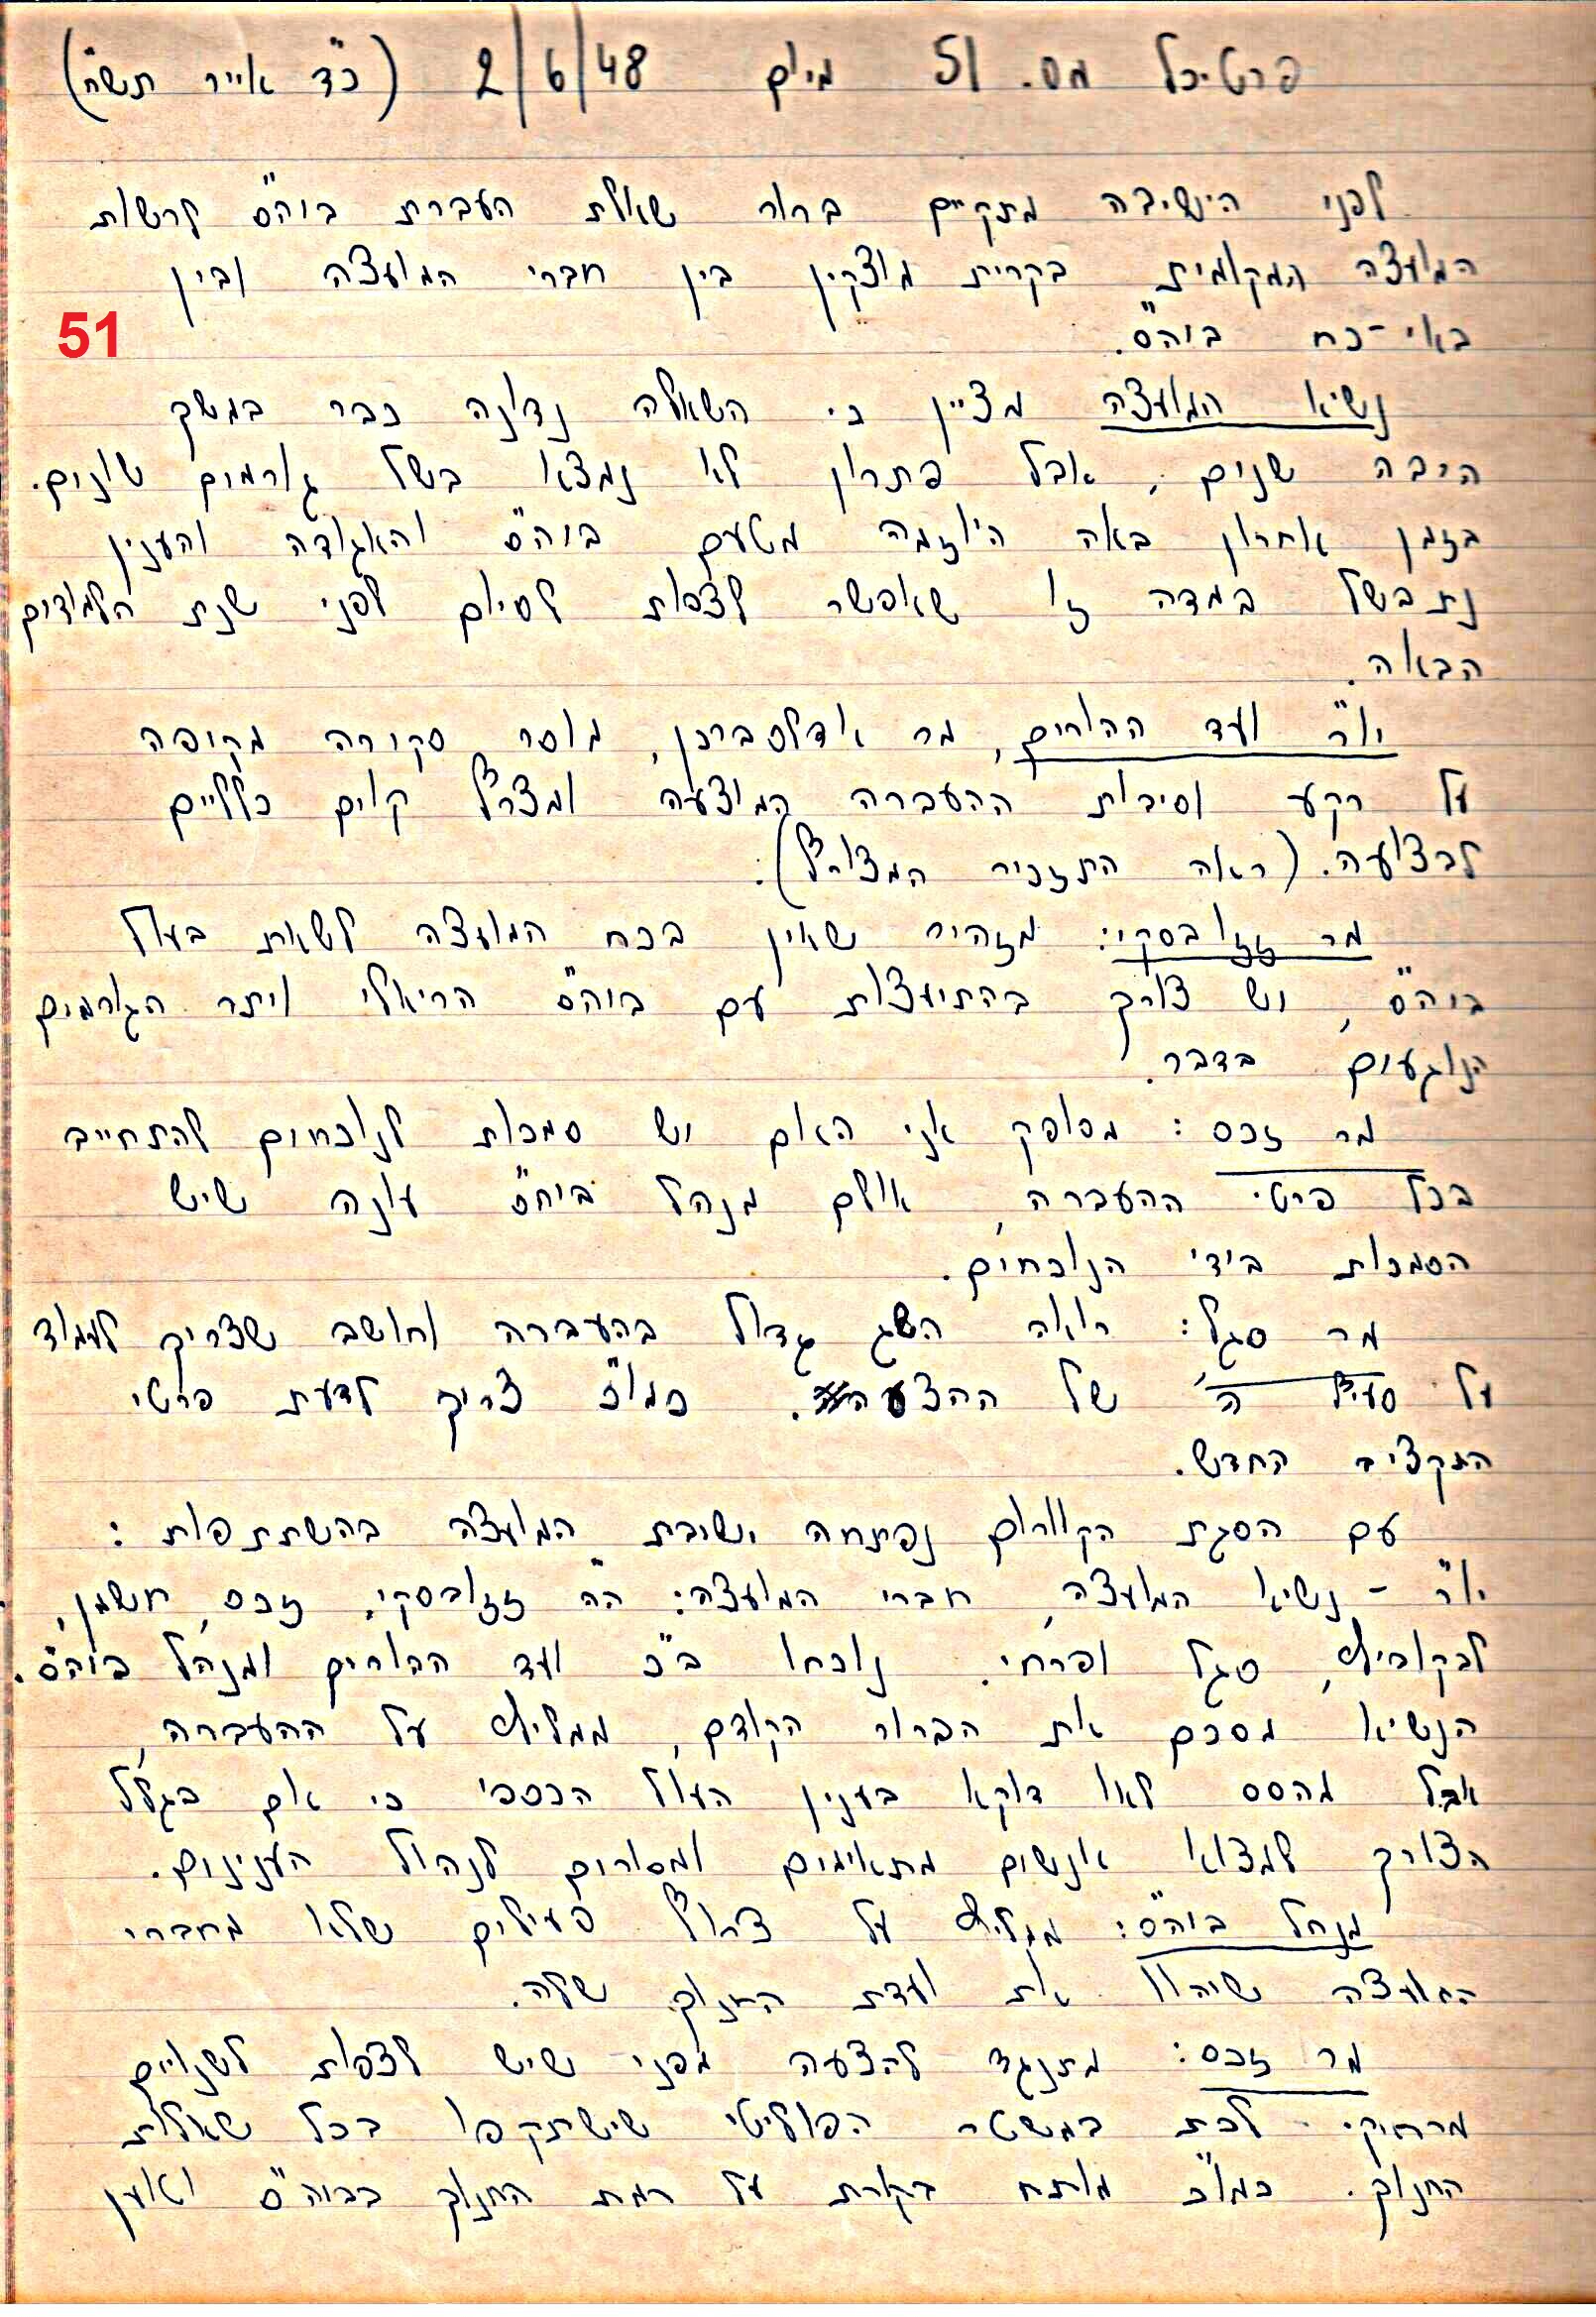 פרטיכל מס. 51 מיום 2/6/48 (כ"ד אייר תש"ח)
לפני הישיבה מתקיים ברור שאלת העברת ביה"ס לרשות
המועצה המקומית בקרית מוצקין בין חברי המועצה ובין
באי-כח ביה"ס.
51
נשיא המועצה מציין כי השאלה נדונה כבר במשך
הרבה שנים, אבל פתרון לא נמצא בשל גורמים שונים.
בזמן אחרון באה היוזמה מטעם ביה"ס והאגודה והענין
נתבשל במדה זו שאפשר לצפות לסיום לפני שנת הלמודים
הבאה.
יו"ר ועד ההורים, מר אדלסברג, מוסר סקירה מקיפה
על רקע וסיבות ההעברה המוצעה ומצרף קוים כלליים
לבצועה. (ראה התזכיר המצורף).
מר זזובסקי: מזהיר שאין בכח המועצה לשאת בעול
ביה"ס, ויש צורך בהתיעצות עם ביה"ס הריאלי ויתר הגורמים
הנוגעים בדבר.
מר זכס: מסופק אני האם יש סמכות לנוכחים להתחייב
בכל פרטי ההעברה, אולם מנהל ביה"ס עונה שיש
הסמכות בידי הנוכחים.
מר סגל: רואה השג גדול בהעברה וחושב שצריך לעמוד
על סעיף ה' של ההצעה. כמו"כ צריך לדעת פרטי
התקציב החדש.
עם הסגת הקוורום נפתחה ישיבת המועצה בהשתתפות:
יו"ר - נשיא המועצה, חברי המועצה: ה"ה זזובסקי, זכס, חשמן,
לבקוביץ, סגל ופרחי. נוכחו ב"כ ועד ההורים ומנהל ביה"ס.
הנשיא מסכם את הברור הקודם, ממליץ על ההעברה,
אבל מהסס לאו דוקא בענין העול הכספי כי אם בגלל
הצורך למצוא אנשים מתאימים ומסורים לנהול הענינים.
מנהל ביה"ס: ממליץ על צרוף פעילים שלא מחברי
המועצה שיהוו את ועדת החנוך שלה.
מר זכס: מתנגד להצעה מפני שיש לצפות לשנויים
מרחיקי לכת במשטר הפוליטי שישתקפו בכל שאלות
החנוך. כמו"כ מותח בקורת על רמת החנוך בביה"ס וטוען